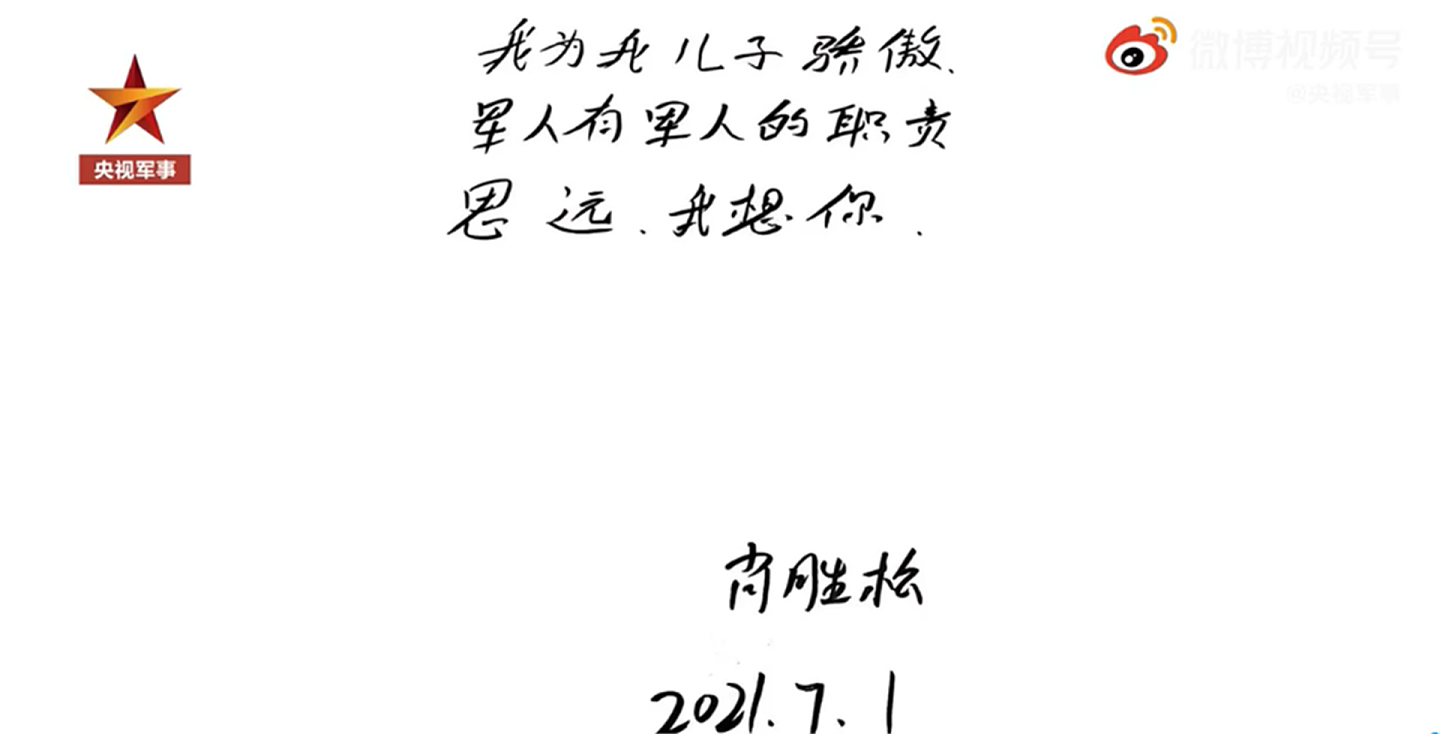 我为我儿子骄傲.
军人有军人的职责
思远.我想你.
肖胜松
2021.7.1
央视军事
微博视频号
@央视军事